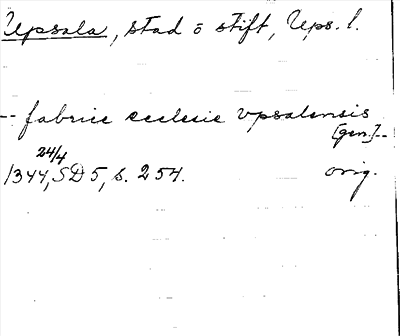 Upsala, stad o stift, Ups. l.
-- fabrice ecclesie vpsalensis
[gen.]--
24/4
1344, SD 5, s. 254. orig.